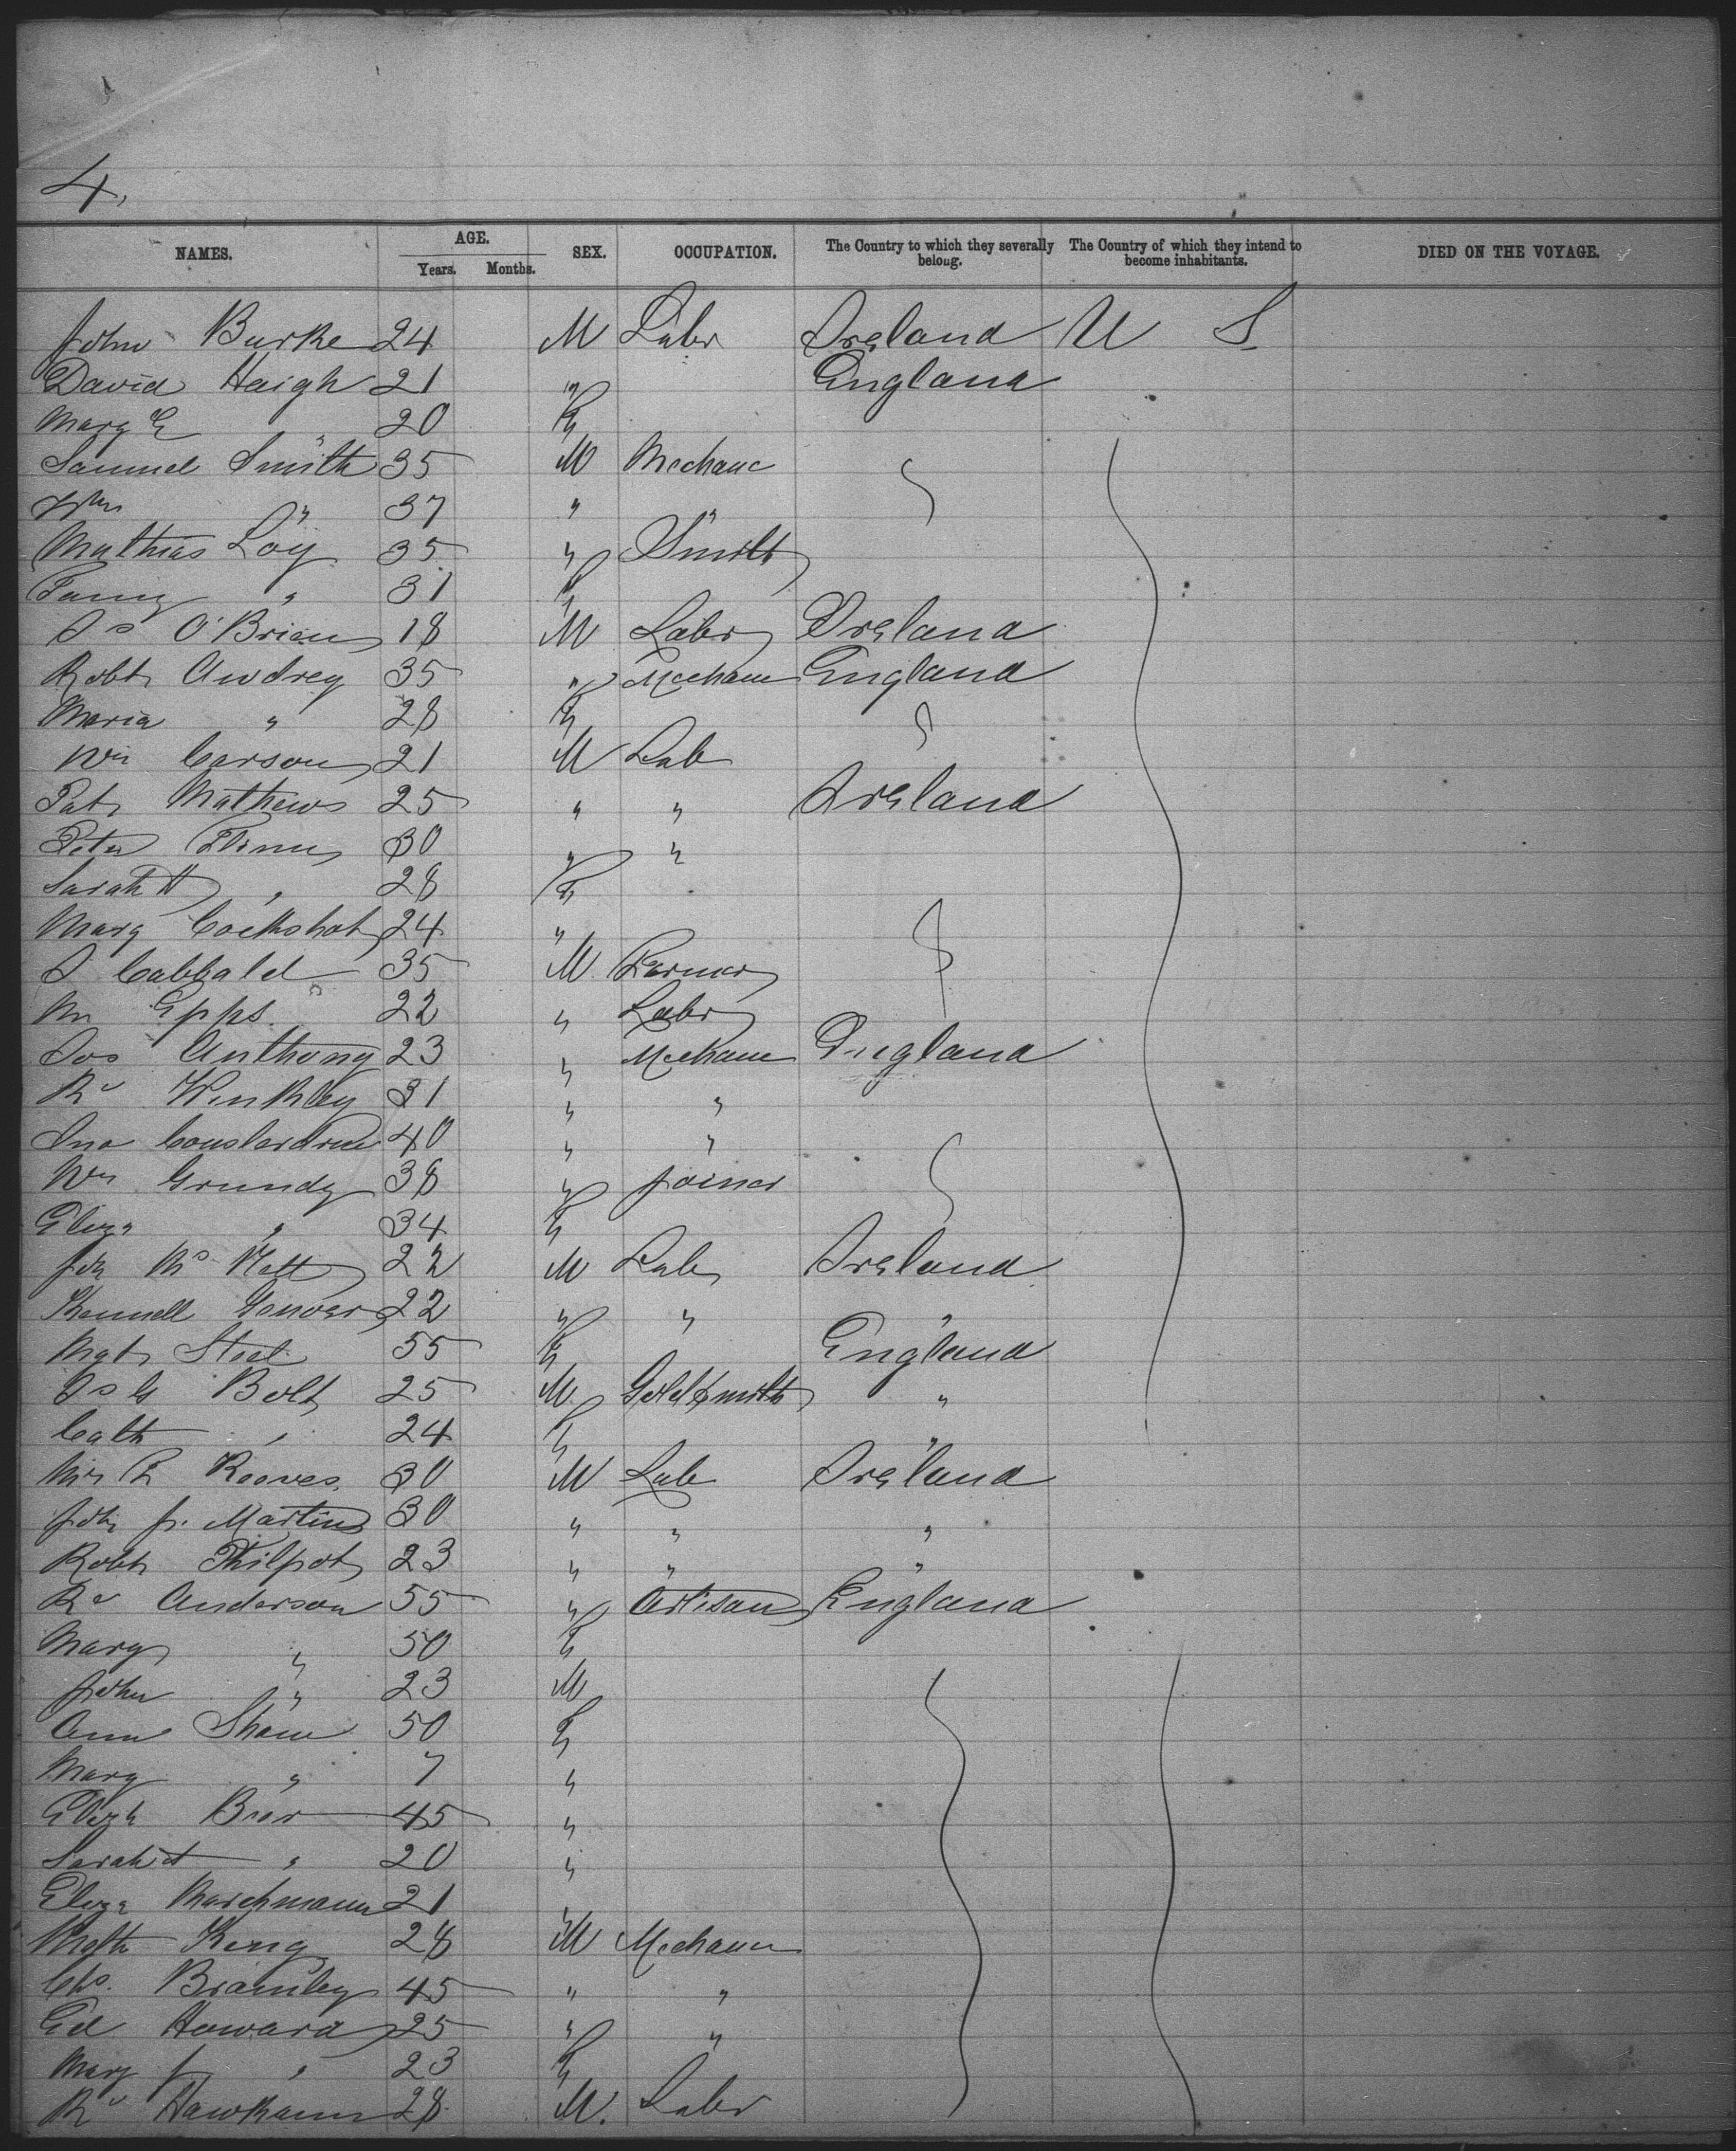 4.
NAMES. AGE. Years. Months. SEX. OCCUPATION. The Country to which they severally belong. The Country of which they intend to become inhabitants. DIED ON THE VOYAGE.
John Burke 24 M Labr Ireland U S
David Haigh 21 " England
Mary E " 20 F
Samuel Smith 35 M Mechanc
Wm " 37 " "
Mathias Loy 35 " Smith
Fanny " 31 F
Js O'Brien 18 M Labr Ireland
Robt Audrey 35 " Mechanc England
Maria " 28 F
Wm Carson 21 M Lab
Pat Mathews 25 " " Ireland
Peter 30 " "
Sarah A " 28 F
Mary Cockshot 24 "
J Cabbald 35 M Farmer
Wm Epps. 22 " Labr
Jos Anthony 23 " Mechanc England
Rd Winkley 31 " "
Jno 40 " "
Wm Grundy 38 " Joiner
Eliza " 34 F
Jn 22 M Lab Ireland
22 " " "
Mgt Steel 55 F England
Js G Bolt 25 M Goldsmith "
Cath " 24 F "
Reeves. 30 M Lab Ireland
Jn J. Martin 30 " " "
Robt Philpot 23 " " "
Rd Anderson 55 " Artisan England
Mary " 50 F
John " 23 M
Ann Shaw 50 F
Mary " 7 "
Elizh 45 "
Sarah A " 20 "
Eliza Marchmann 21 "
King 28 M Mechanc
Chs. Bramley 45 " "
Ed Howard 25 " "
Mary J " 23 F
Rd 28 M. Labr